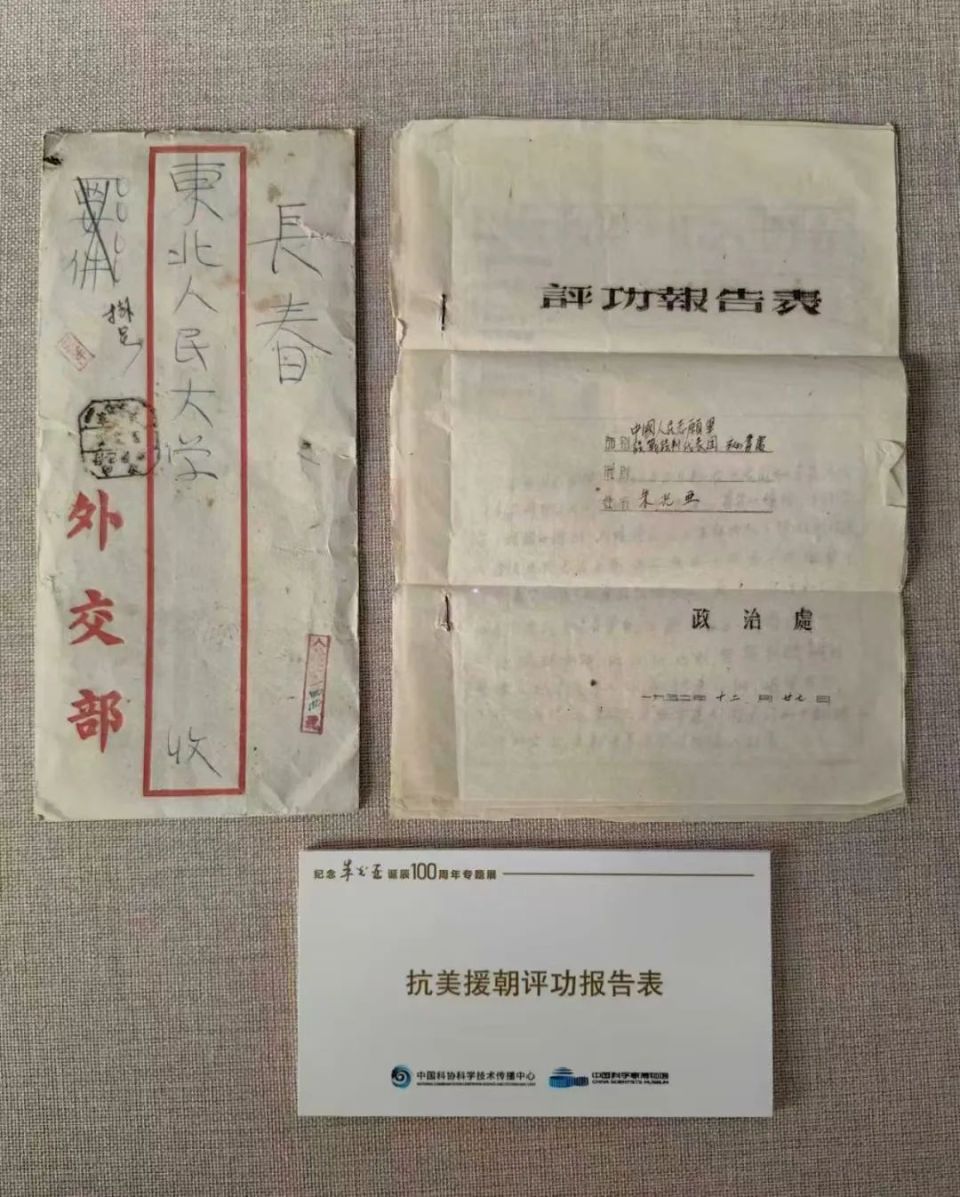 長春
東北人民大学
收
掛号
外交部
評功報告表
中國人民志願軍
部別 停戰談判代表团 秘書處
職別
姓名 朱光亚
政治處
一九五二年 十二 月 廿七 日
纪念朱光亚诞辰100周年专题展
抗美援朝评功报告表
中国科协科学技术传播中心
中国科学家博物馆
CHINA SCIENTISTS MUSEUM